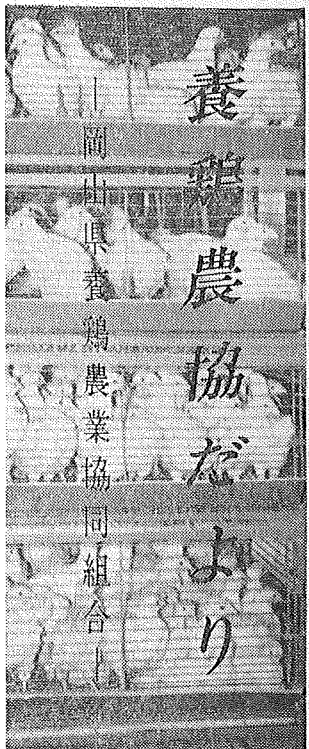 養鶏農協だより
―岡山県養鶏農業協同組合―